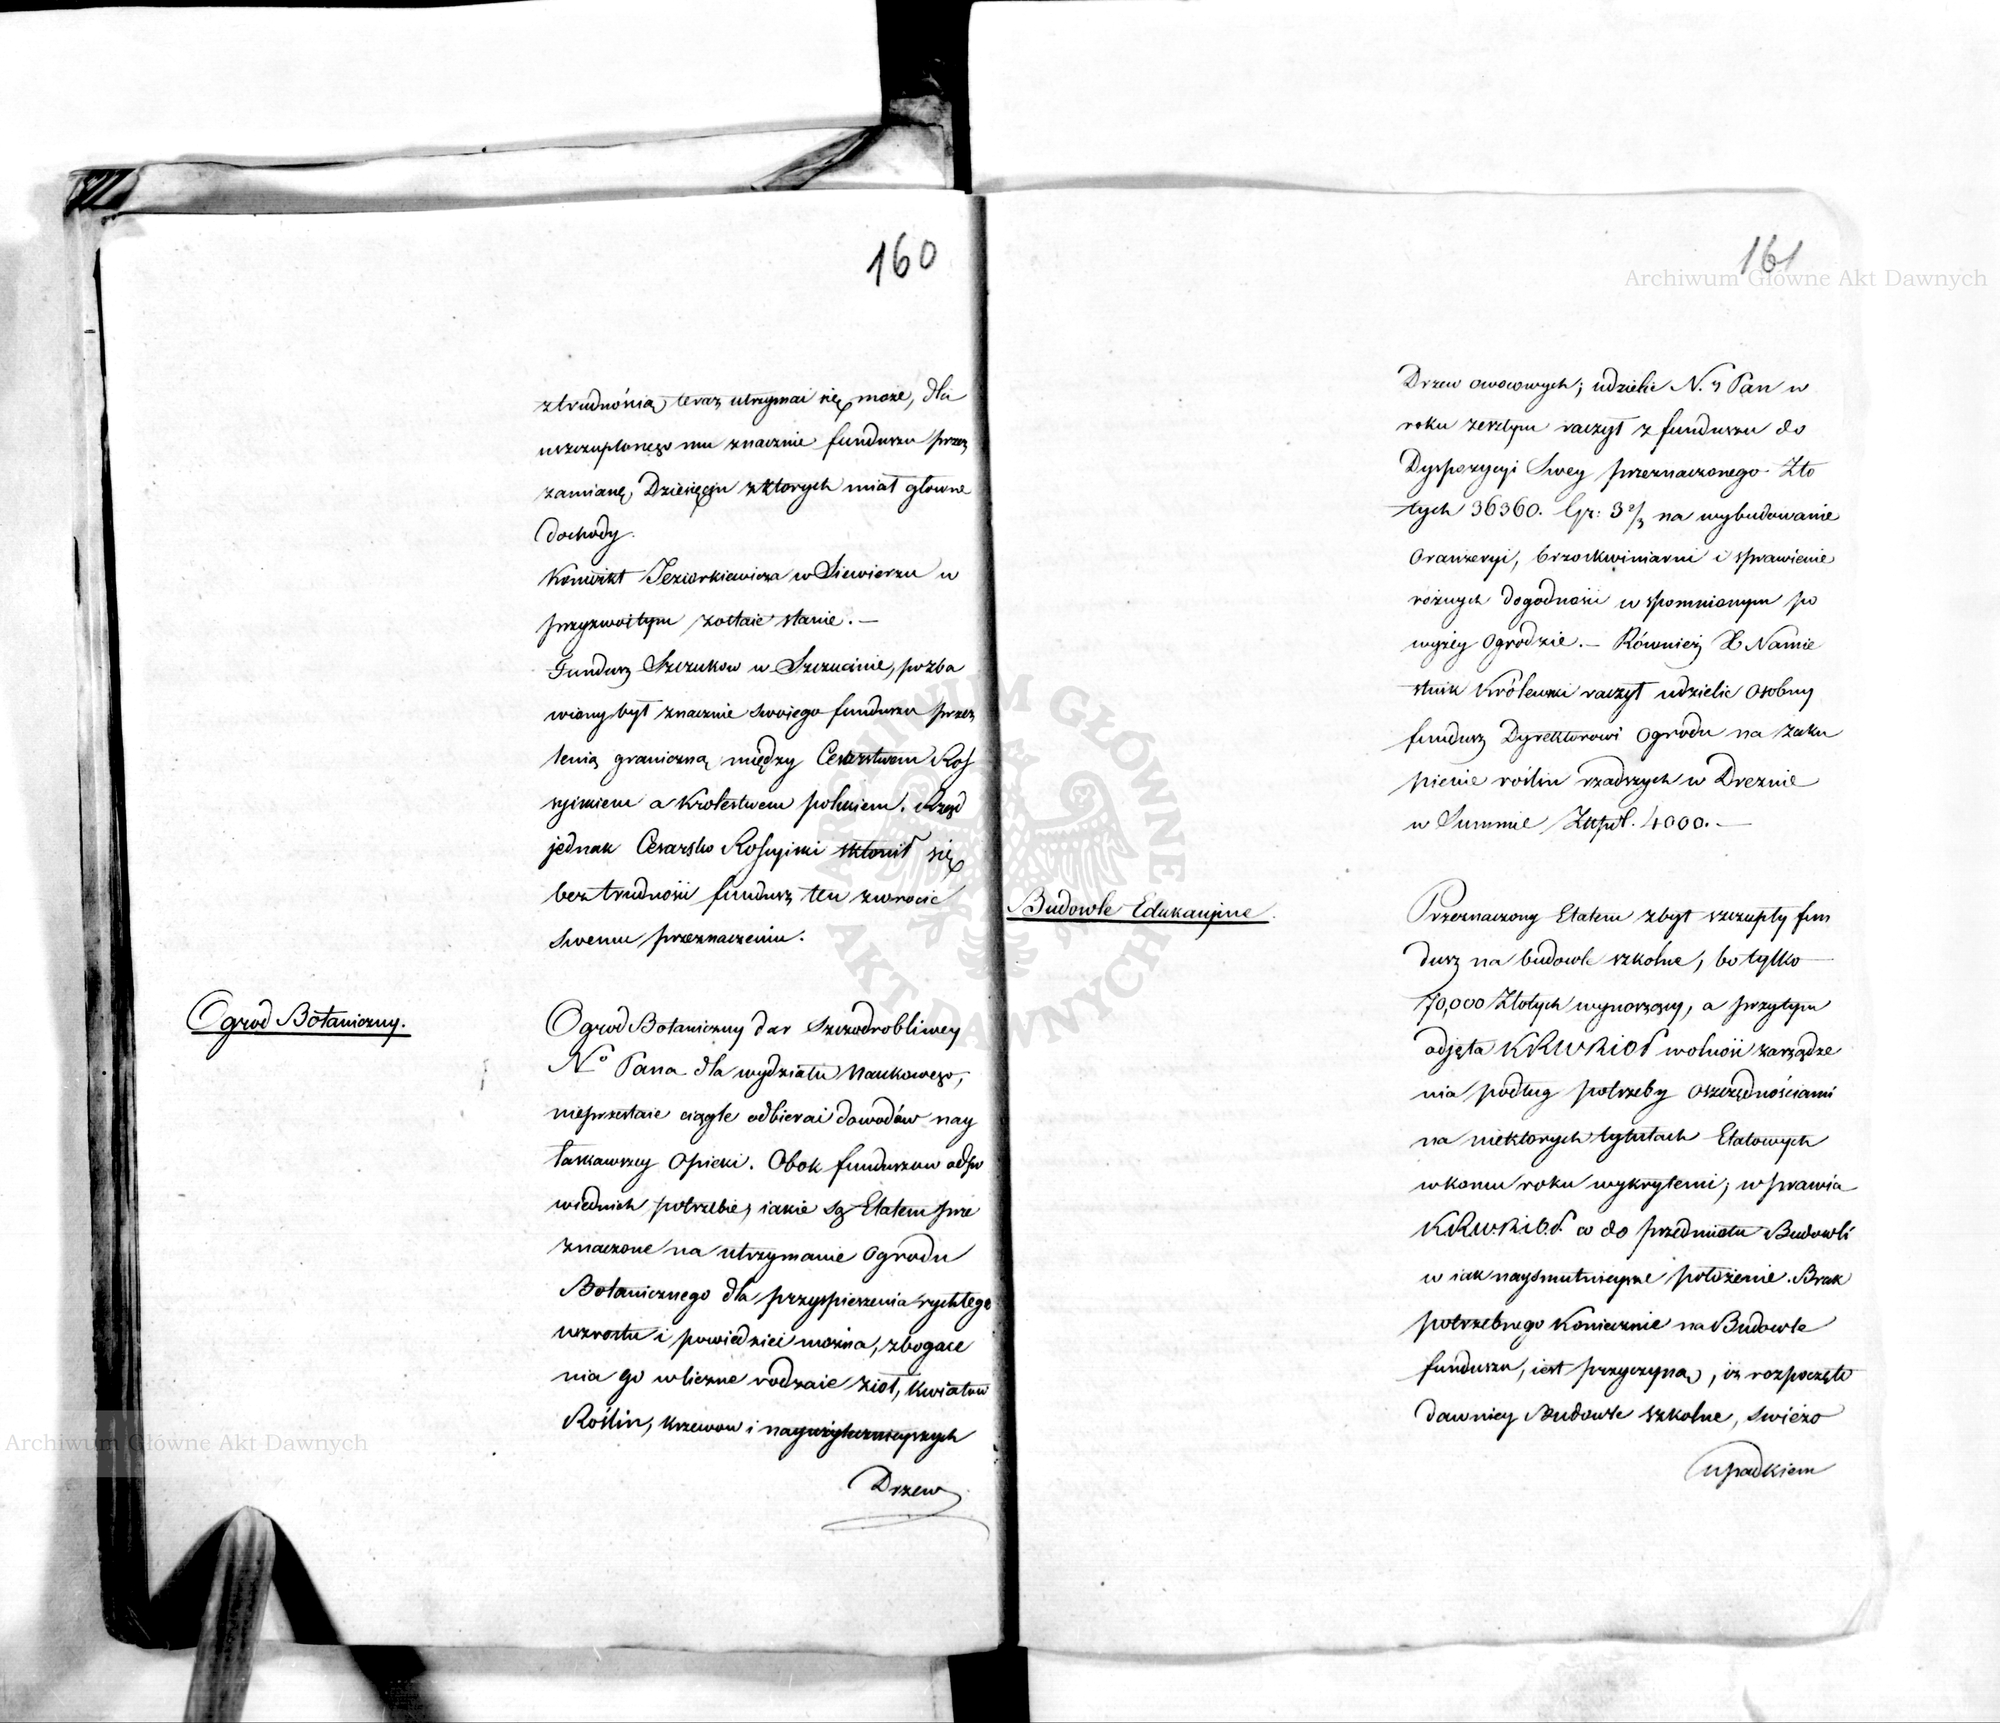 160
ztrudnością teraz utrzymai się może, dla
uszczuplonego mu znacznie funduszu przez
zamianę Dziesięcin zktorych miał głowne
dochody.
Konwikt Jeziorkiewicza w Siewierzu w
przyzwoitym zostaie stanie. —
Fundusz Szczukow w Szczucinie, pozba
wiony był znacznie swoiego funduszu przez
lenią graniczną między Cesarstwem Ros
syiskiem a Krolestwem polskiem. Rząd
jednak Cesarsko Rossyiski skłonił się
bez trudności fundusz ten zwrocić
swemu przeznaczeniu.
Ogrod Botaniczny.
Ogrod Botaniczny dar Szczodrobliwey
No Pana dla wydziału Naukowego,
nieprzestaie ciągle odbierai dowodów nay
łaskawszey Opieki. Obok funduszow odpo
wiednich potrzebie, iakie są Etatem prze
znaczone na utrzymanie Ogrodu
Botanicznego dla przyspieszenia rychłego
wzrostu i powiedziei można, zbogace
nia go w liczne rodzaie ziół, kwiatow
Roślin, krzewow i nayużytecznieyszych
Drzew
161
Archiwum Główne Akt Dawnych
Drzew owocowych; udzielić N. y Pan w
roku zeszłym raczył z funduszu do
Dyspozycyi Swey przeznaczonego Zło
tych 36360. Gr: 3 2/3 na wybudowanie
Oranżeryi, brzoskwiniarni i sprawienie
rożnych dogodności w spomnionym po
wyżey Ogrodzie. — Również X Namie
stnik Królewski raczył udzielic Osobny
fundusz Dyrektorowi Ogrodu na zaku
pienie roślin rzadszych w Dreznie
w Summie Złtpol. 4000. —
Budowle Edukacyine.
Przeznaczony Etatem zbyt szczupły fun
dusz na budowle szkolne, bo tylko —
70,000 Złotych wynoszący, a przytym
odjęta KRWRiOP wolności zarządze
nia podług potrzeby Oszczędnościami
na niektorych tytułach Etatowych
wkońcu roku wykrytemi; wprawia
KRWRiOP. co do przedmiotu Budowli
w iak naysmutnieysze położenie. Brak
potrzebnego koniecznie na Budowle
funduszu, iest przyczyną, iż rozpoczęte
dawniey Budowle szkolne, świeżo
upadkiem
Archiwum Główne Akt Dawnych
ARCHIWUM GŁÓWNE AKT DAWNYCH